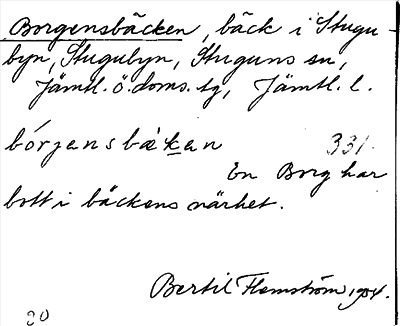 Borgensbäcken, bäck i Stugu-
byn, Stugubyn, Stuguns sn,
Jämtl. ö. doms. tg, Jämtl. l.
bórgensbækan 331.
En Borg har
bott i bäckens närhet.
Bertil Flemström 1954.
20